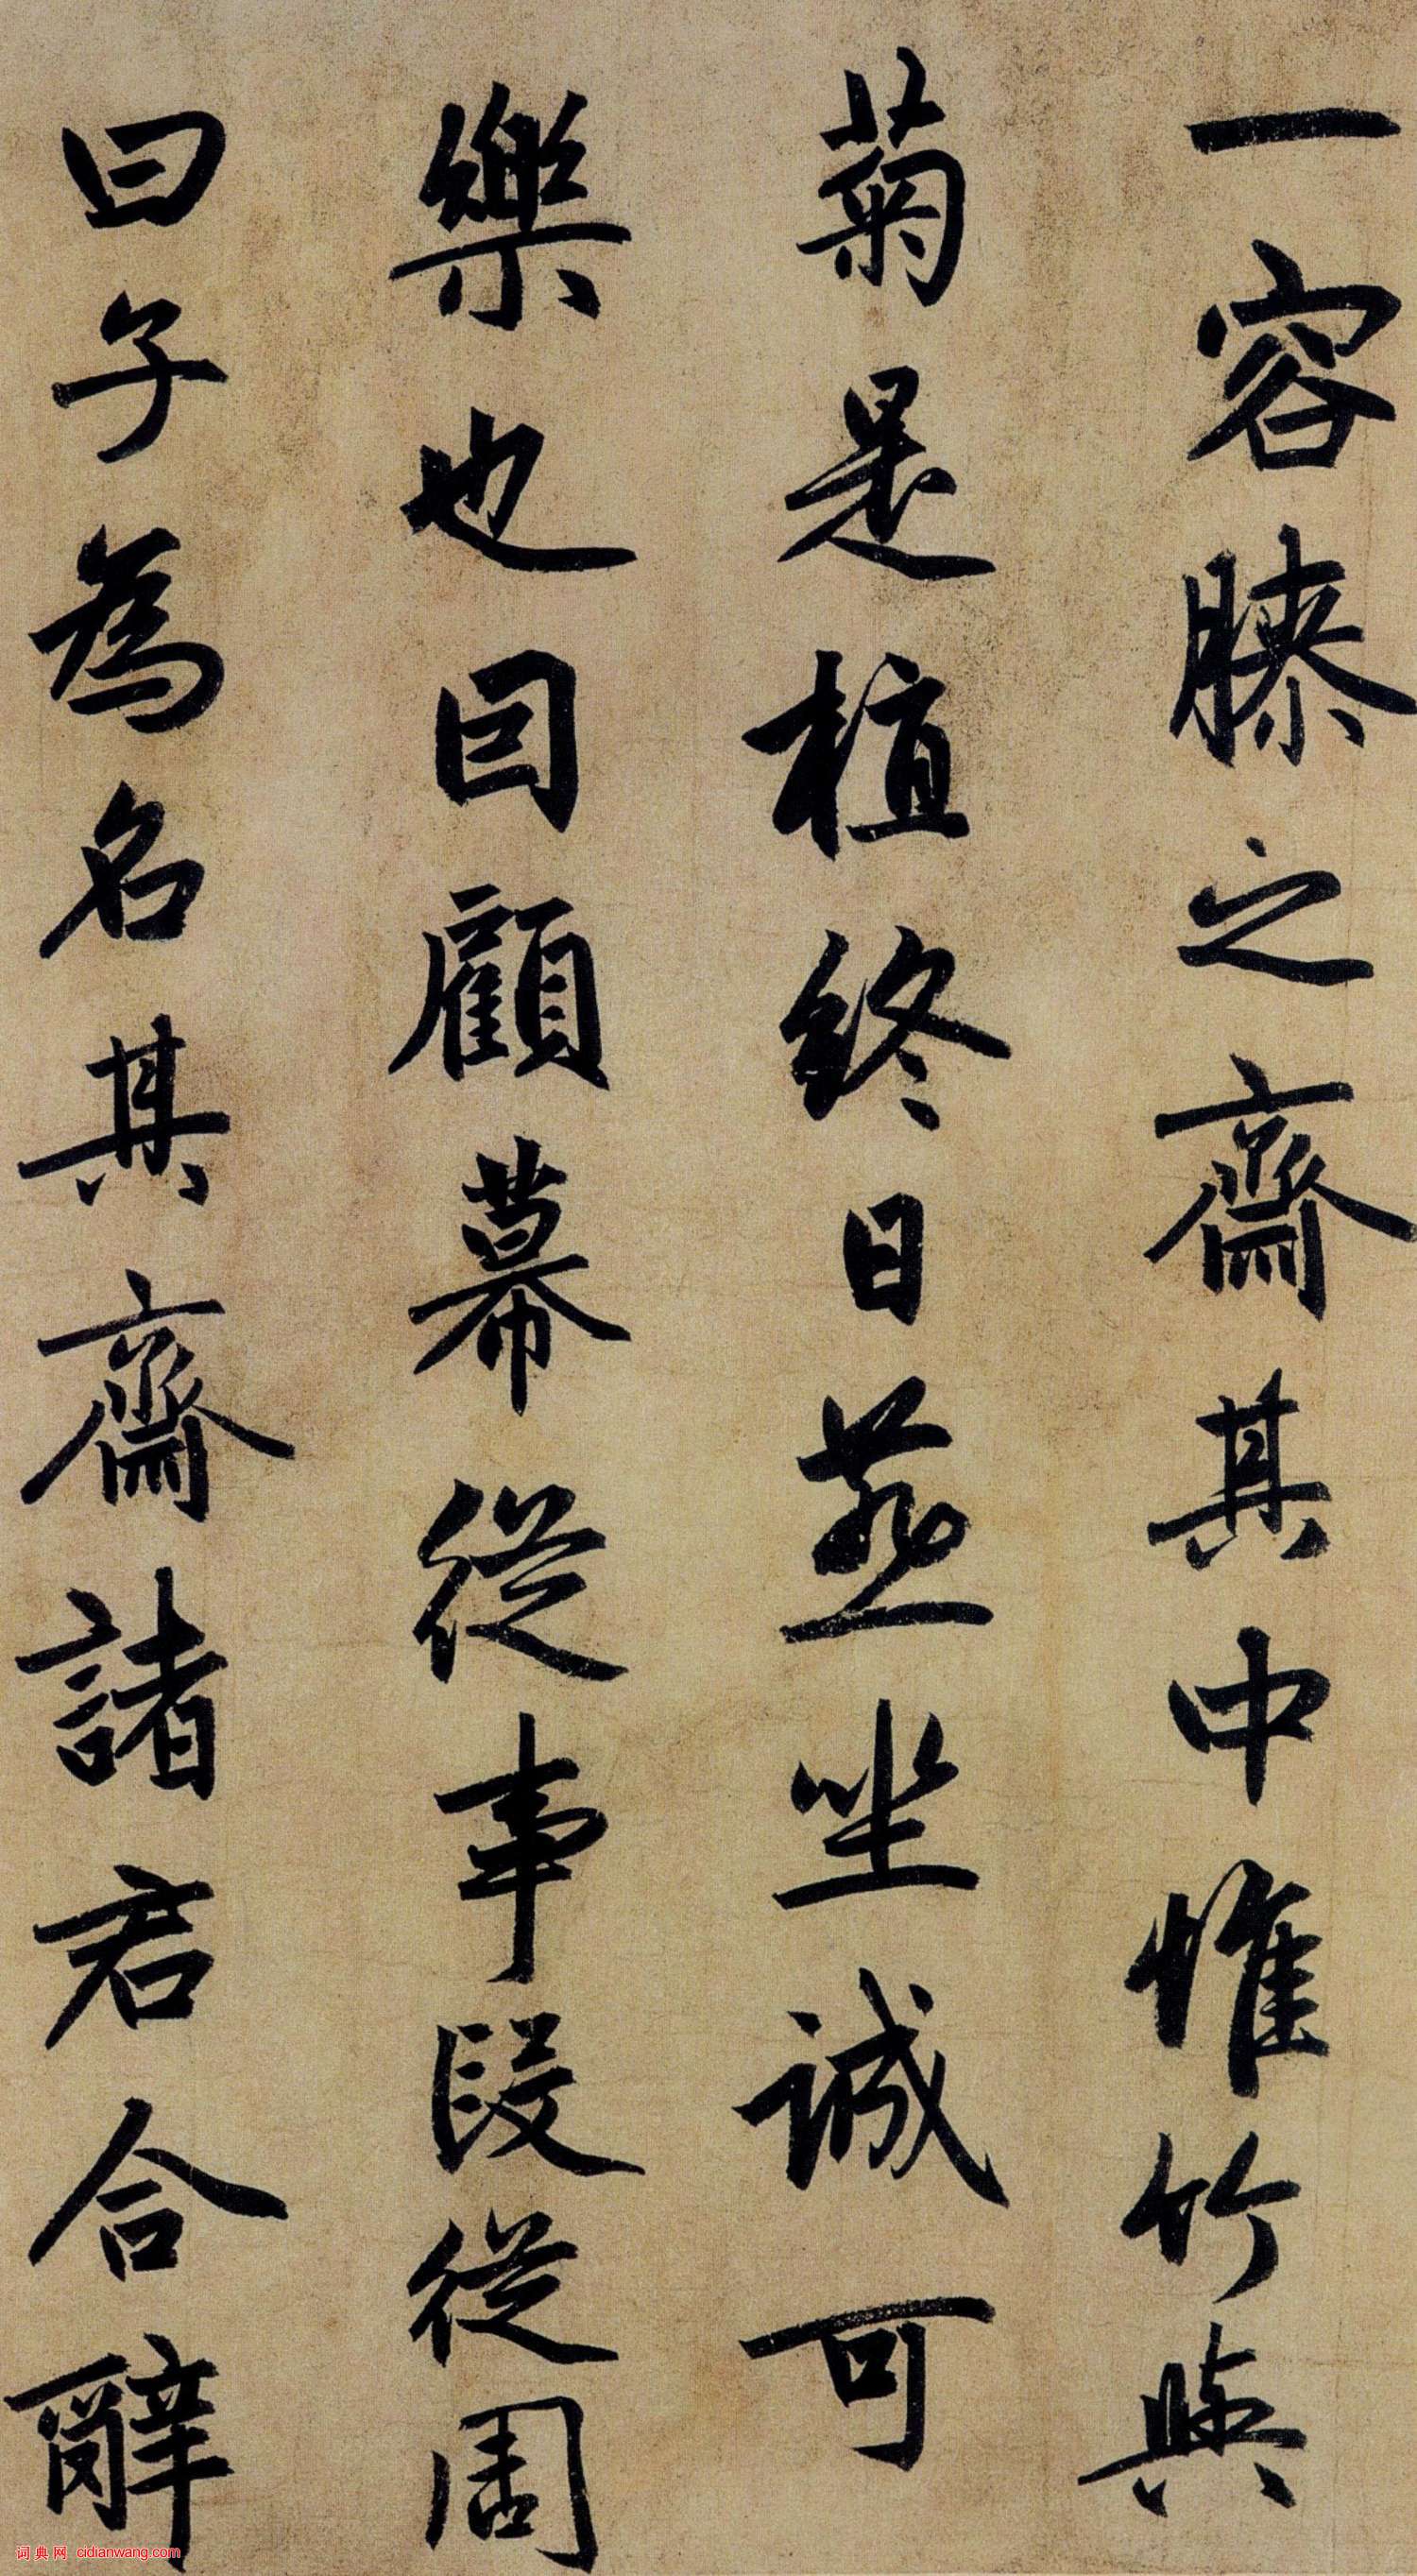 一容膝之齋其中惟竹與
菊是植終日燕坐誠可
樂也囙顧幕從事段從周
曰子為名其齋諸君合辭
词典网 cidianwang.com